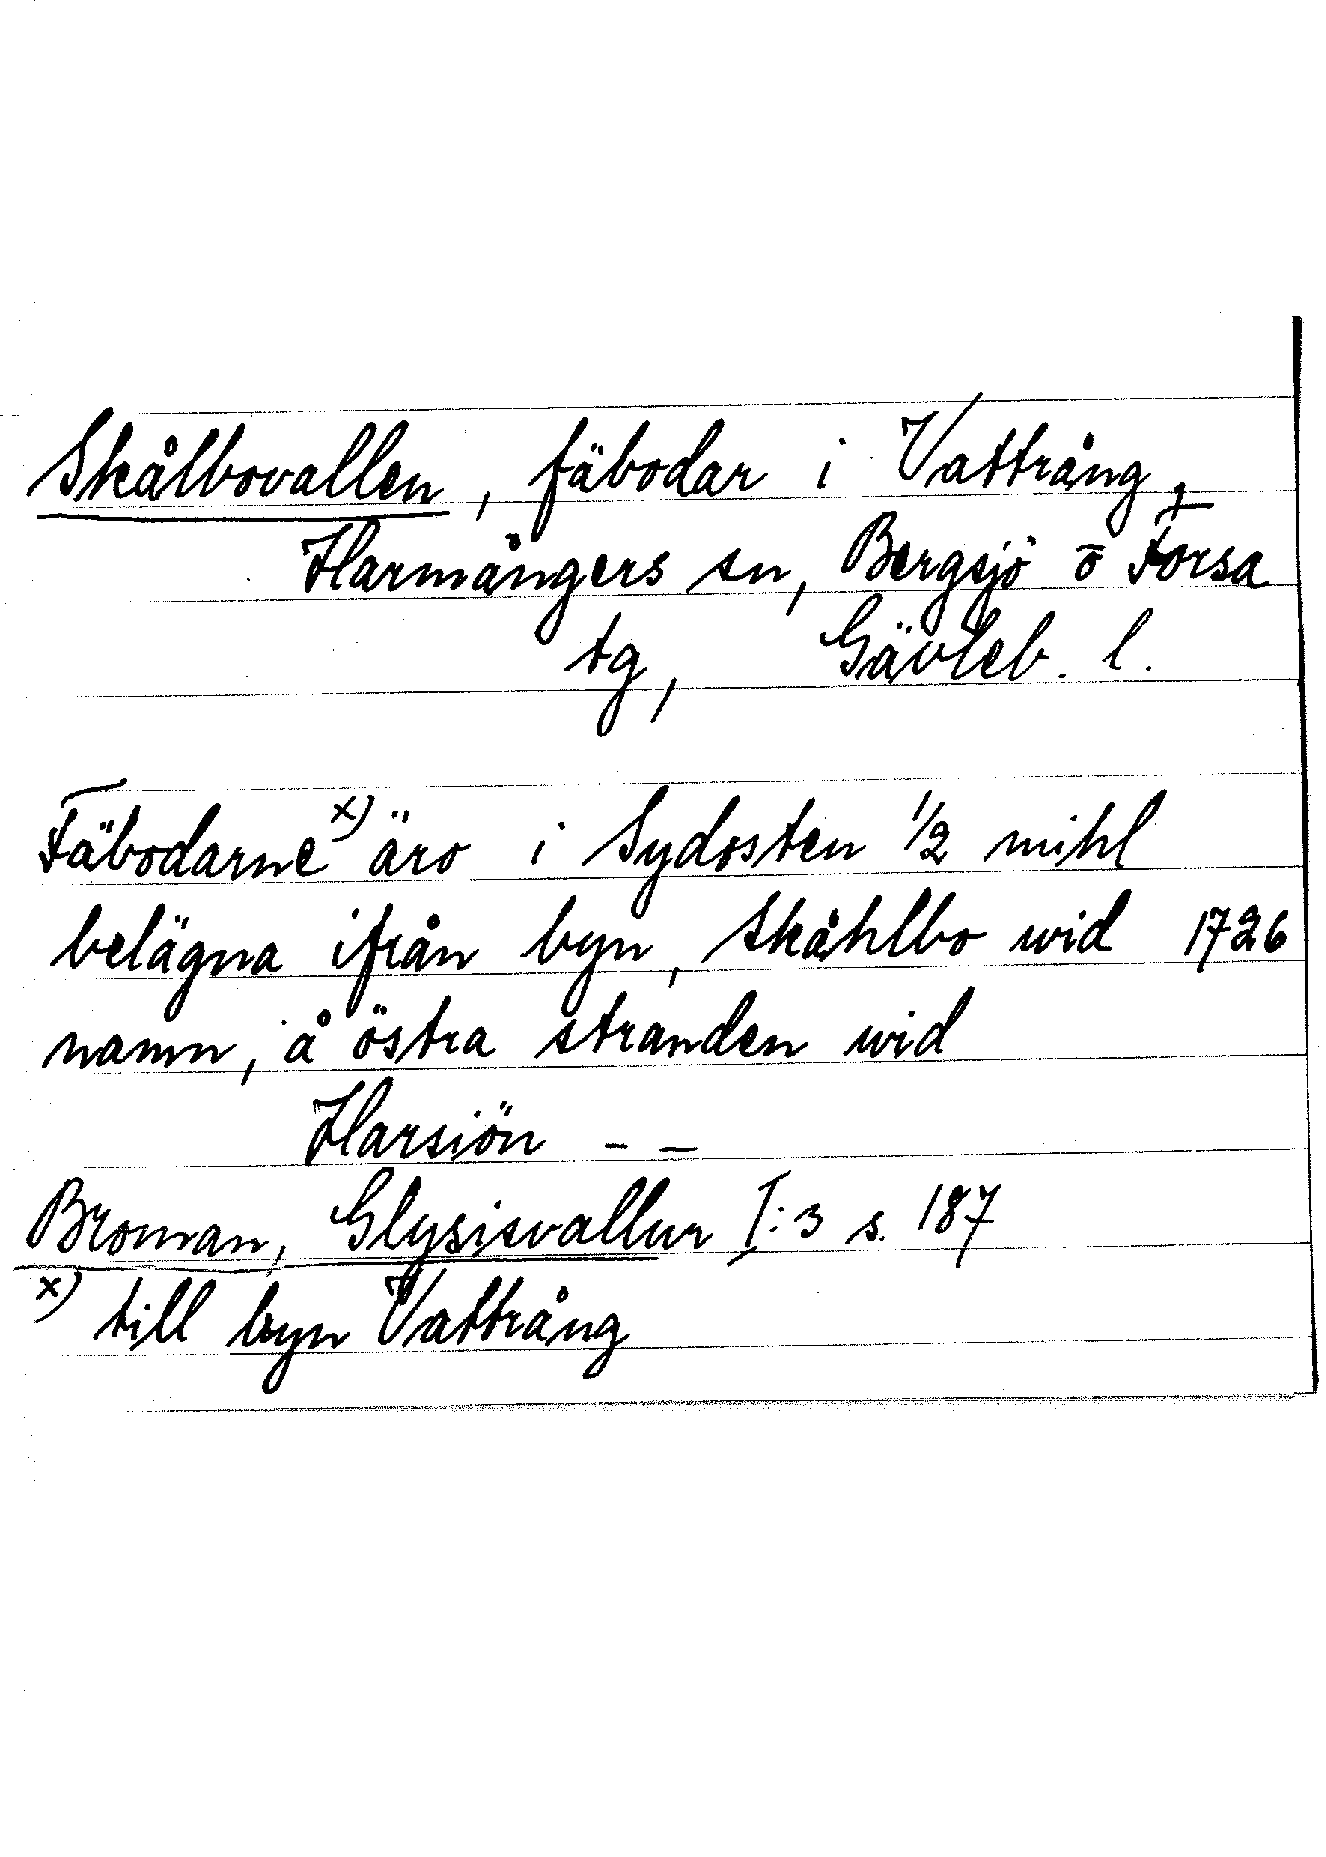 Skålbovallen, fäbodar i Vattrång,
Harmångers sn, Bergsjö o Forsa
tg, Gävleb. l.
Fäbodarne x) äro i Sydosten 1/2 mihl
belägna ifrån byn, Skåhlbo wid 1726
namn, å östra stranden wid
Harsiön - -
Broman, Glysisvallur I:3 s. 187
x) till byn Vattrång